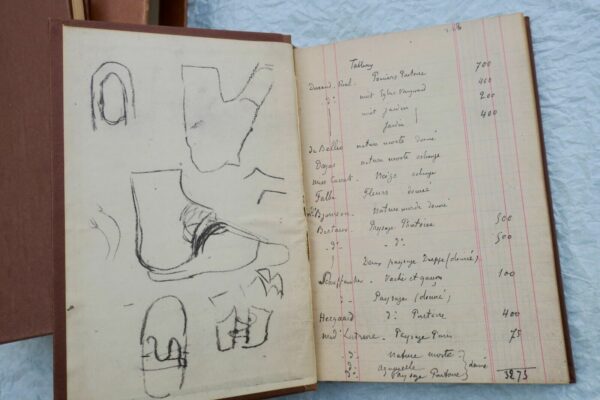 Tableaux 700
Durand-Ruel. Poiriers Pontoise 400
d° nuit 200
nuit jardin
Jardin 400
de Bellio nature morte donné
Degas nature morte echange
Miss Cassatt. Neige echange
Fleurs donné
Me Bjornson. Nature morte donné
Bertaux Paysage Pontoise 500
d° - d° 500
Deux paysage Dieppe (donné)
Schuffenecker. Vache et gazon 100
Paysage (donné)
Heegaard d° Pontoise 400
Paysage Paris 75
d° nature morte
d° aquarelle donné
d° Paysage Pontoise
3275